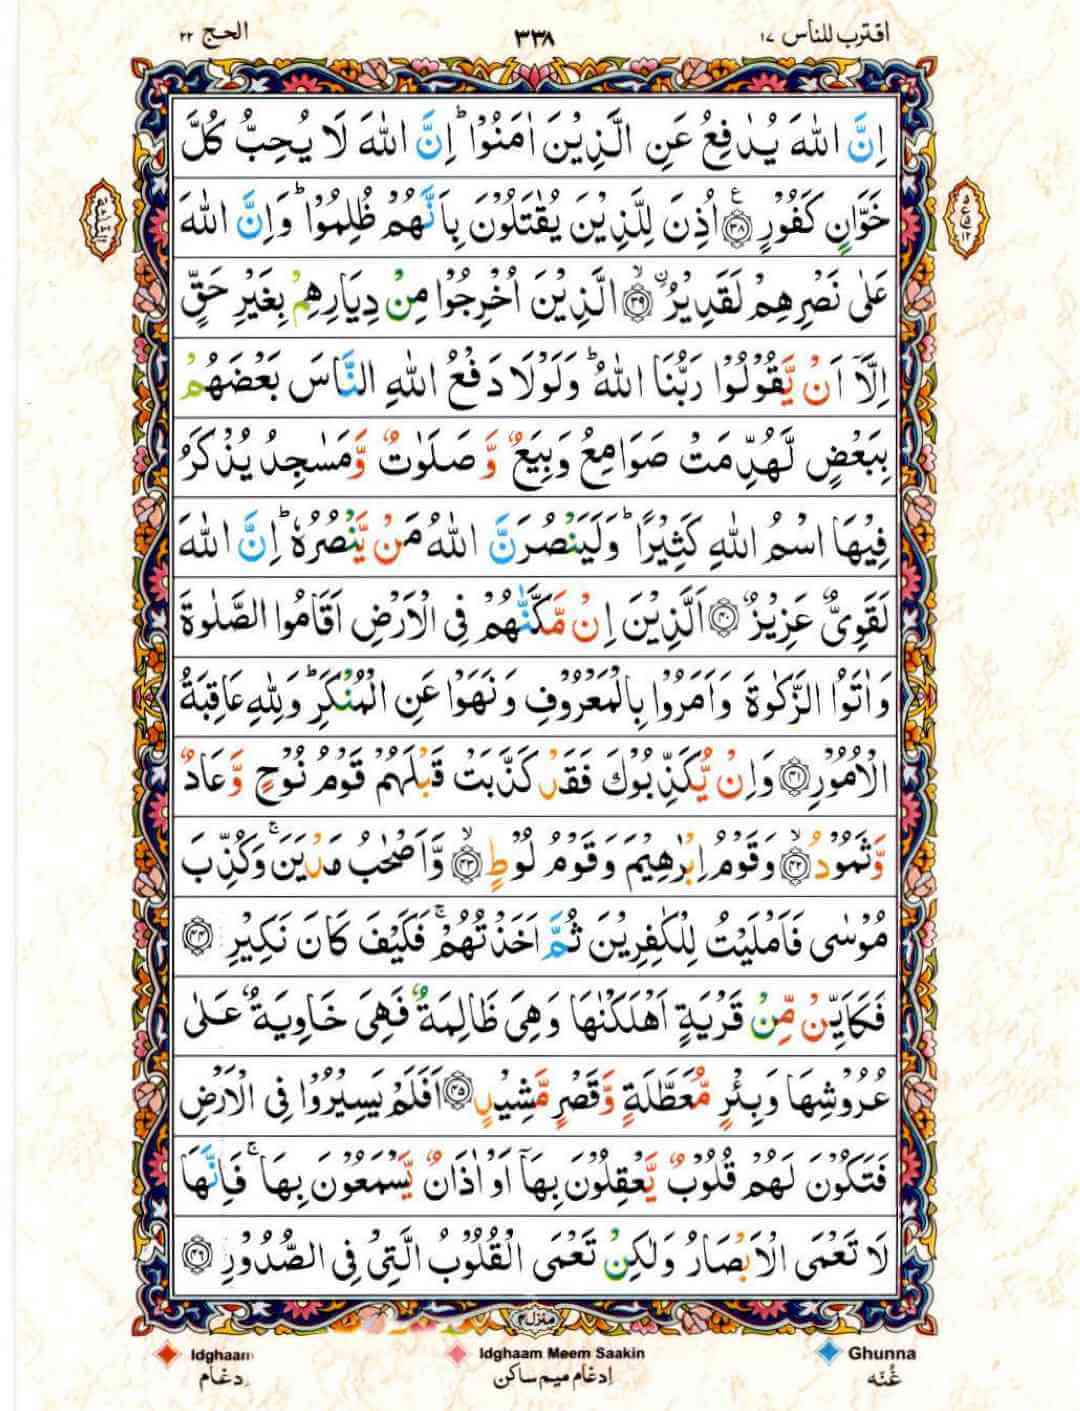 اقترب للناس ١٧
٣٣٨
الحج ٢٢
اِنَّ اللّٰهَ يُدٰفِعُ عَنِ الَّذِيْنَ اٰمَنُوْا ؕ اِنَّ اللّٰهَ لَا يُحِبُّ كُلَّ
خَوَّانٍ كَفُوْرٍ ۝٣٨ اُذِنَ لِلَّذِيْنَ يُقٰتَلُوْنَ بِاَنَّهُمْ ظُلِمُوْا ؕ وَاِنَّ اللّٰهَ
عَلٰى نَصْرِهِمْ لَقَدِيْرُ ۝٣٩ۙ الَّذِيْنَ اُخْرِجُوْا مِنْ دِيَارِهِمْ بِغَيْرِ حَقٍّ
اِلَّاۤ اَنْ يَّقُوْلُوْا رَبُّنَا اللّٰهُ ؕ وَلَوْلَا دَفْعُ اللّٰهِ النَّاسَ بَعْضَهُمْ
بِبَعْضٍ لَّهُدِّمَتْ صَوَامِعُ وَبِيَعٌ وَّ صَلَوٰتٌ وَّمَسٰجِدُ يُذْكَرُ
فِيْهَا اسْمُ اللّٰهِ كَثِيْرًا ؕ وَلَيَنْصُرَنَّ اللّٰهُ مَنْ يَّنْصُرُهٗ ؕ اِنَّ اللّٰهَ
لَقَوِىٌّ عَزِيْزٌ ۝٤٠ اَلَّذِيْنَ اِنْ مَّكَّنّٰهُمْ فِى الْاَرْضِ اَقَامُوا الصَّلٰوةَ
وَاٰتَوُا الزَّكٰوةَ وَاَمَرُوْا بِالْمَعْرُوْفِ وَنَهَوْا عَنِ الْمُنْكَرِ ؕ وَلِلّٰهِ عَاقِبَةُ
الْاُمُوْرِ ۝٤١ وَاِنْ يُّكَذِّبُوْكَ فَقَدْ كَذَّبَتْ قَبْلَهُمْ قَوْمُ نُوْحٍ وَّعَادٌ
وَّثَمُوْدُ ۝٤٢ۙ وَقَوْمُ اِبْرٰهِيْمَ وَقَوْمُ لُوْطٍ ۝٤٣ۙ وَّاَصْحٰبُ مَدْيَنَ ۚ وَكُذِّبَ
مُوْسٰى فَاَمْلَيْتُ لِلْكٰفِرِيْنَ ثُمَّ اَخَذْتُهُمْ ۚ فَكَيْفَ كَانَ نَكِيْرِ ۝٤٤
فَكَاَيِّنْ مِّنْ قَرْيَةٍ اَهْلَكْنٰهَا وَهِىَ ظَالِمَةٌ فَهِىَ خَاوِيَةٌ عَلٰى
عُرُوْشِهَا وَبِئْرٍ مُّعَطَّلَةٍ وَّقَصْرٍ مَّشِيْدٍ ۝٤٥ اَفَلَمْ يَسِيْرُوْا فِى الْاَرْضِ
فَتَكُوْنَ لَهُمْ قُلُوْبٌ يَّعْقِلُوْنَ بِهَاۤ اَوْ اٰذَانٌ يَّسْمَعُوْنَ بِهَا ۚ فَاِنَّهَا
لَا تَعْمَى الْاَبْصَارُ وَلٰكِنْ تَعْمَى الْقُلُوْبُ الَّتِىْ فِى الصُّدُوْرِ ۝٤٦
منزل ٤
Idghaam
Idghaam Meem Saakin
Ghunna
إدغام ميم ساكن
غُنّه